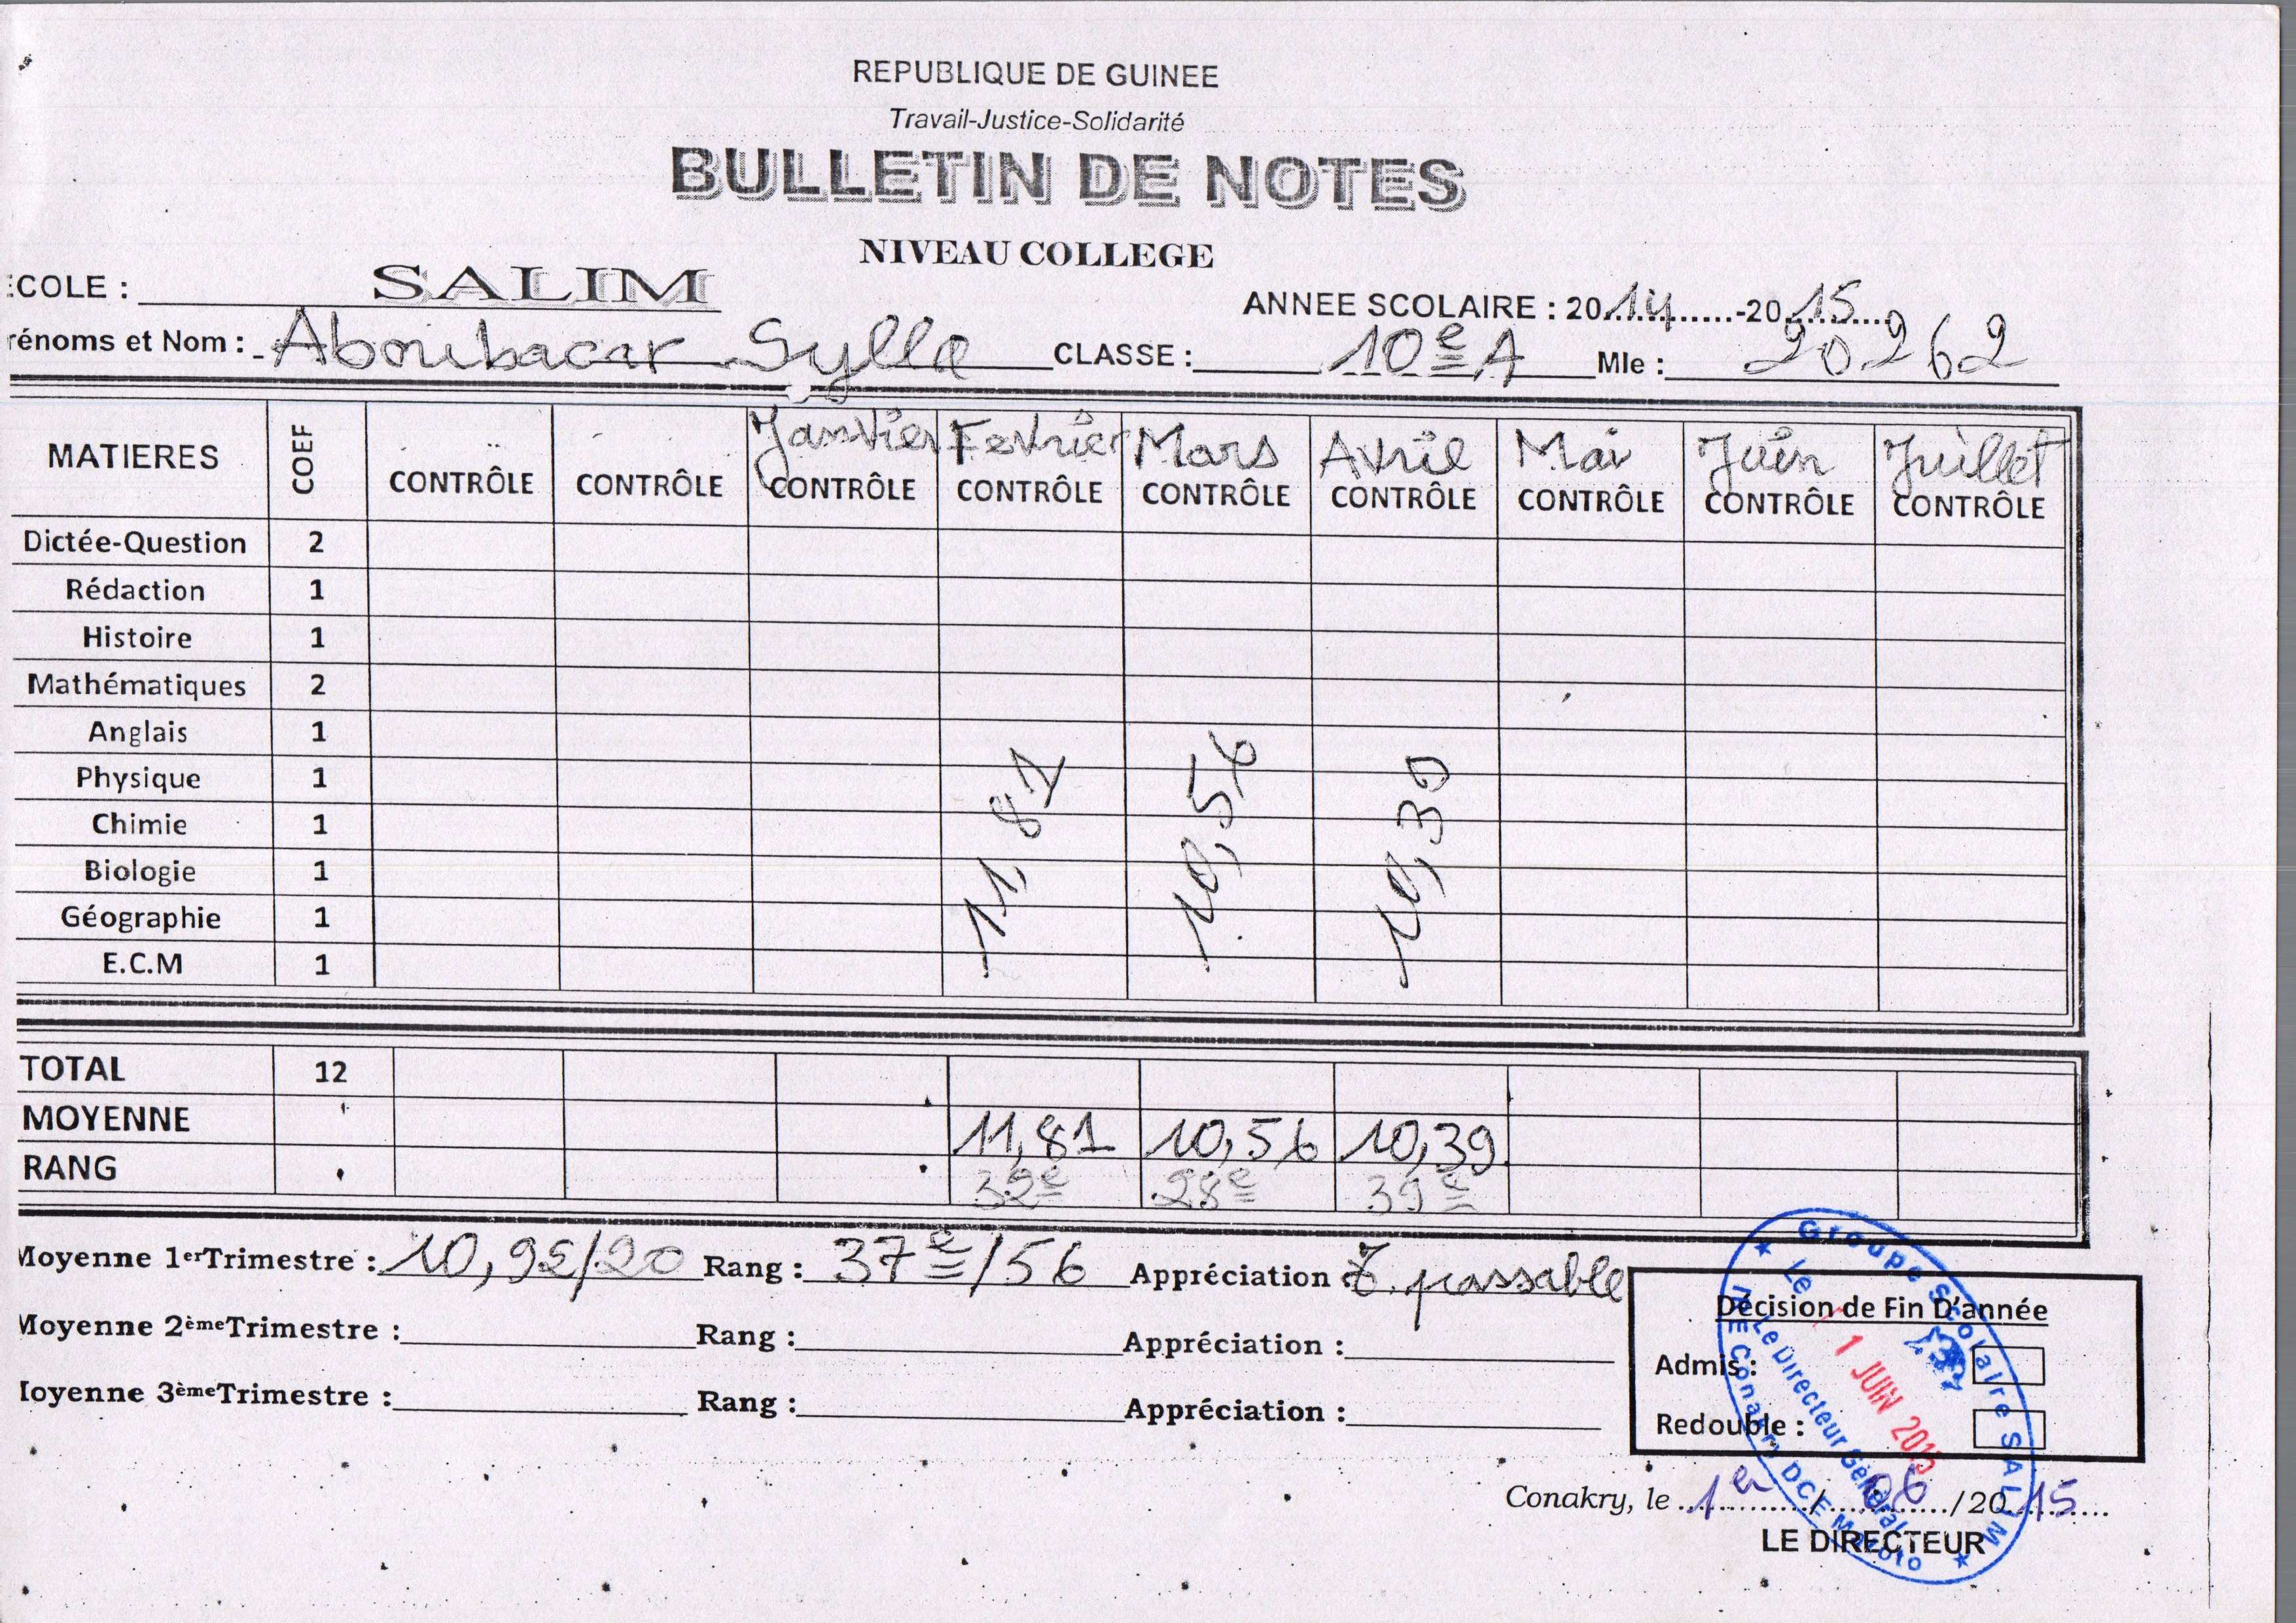 REPUBLIQUE DE GUINEE
Travail-Justice-Solidarité
BULLETIN DE NOTES
NIVEAU COLLEGE
COLE : SALIM
ANNEE SCOLAIRE : 2014-2015
rénoms et Nom : Aboubacar Sylla CLASSE : 10e A Mle : 20262
MATIERES COEF CONTRÔLE CONTRÔLE Janvier CONTRÔLE Fevrier CONTRÔLE Mars CONTRÔLE Avril CONTRÔLE Mai CONTRÔLE Juin CONTRÔLE Juillet CONTRÔLE
Dictée-Question 2
Rédaction 1
Histoire 1
Mathématiques 2
Anglais 1
Physique 1
Chimie 1
Biologie 1
Géographie 1
E.C.M 1
11,81 10,56 10,39
TOTAL 12
MOYENNE 11,81 10,56 10,39
RANG 32e 28e 39e
Moyenne 1erTrimestre : 10,92/20 Rang : 37e/56 Appréciation : T. passable
Moyenne 2èmeTrimestre : Rang : Appréciation :
oyenne 3èmeTrimestre : Rang : Appréciation :
Décision de Fin D'année
Admis :
Redouble :
Groupe Scolaire SALIM
Le Directeur Général
IRE Conakry DCE Matoto
Le 11 JUIN 2015
Conakry, le 1er/06/2015
LE DIRECTEUR